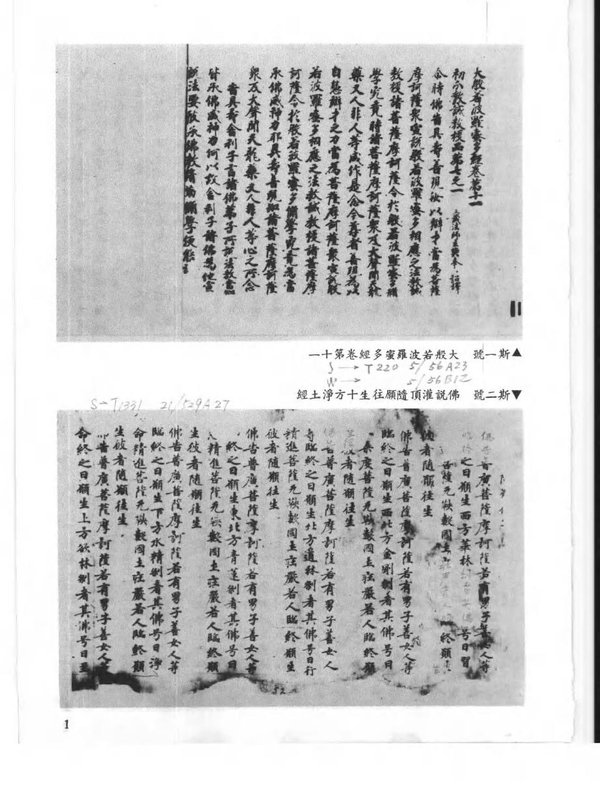 大般若波羅蜜多經卷第十一
初分教誡教授品第七之一 三藏法師玄奘奉 詔譯
尒時佛告具壽善現汝以辯才當為菩薩
摩訶薩衆宣說般若波羅蜜多相應之法教誡
教授諸菩薩摩訶薩令於般若波羅蜜多修
學究竟時諸菩薩摩訶薩衆及大聲聞天龍
藥叉人非人等咸作是念今尊者善現為以
自慧辯才之力當為菩薩摩訶薩衆宣說般
若波羅蜜多相應之法教誡教授諸菩薩摩
訶薩令於般若波羅蜜多修學究竟為當
承佛威神力耶具壽善現知諸菩薩摩訶薩
衆及大聲聞天龍藥叉人非人等心之所念
告具壽舍利子言諸佛弟子所說法教當
皆承佛威神力何以故舍利子諸佛為他宣
說法要彼承佛教精勤修學便能
▲斯一號 大般若波羅蜜多經卷第十一
S → T220 5/56A23
W → 5/56B12
▼斯二號 佛説灌頂隨願往生十方淨土經
S→T1331 21/529A27
普廣菩薩摩訶薩若有男子善女人等
之日願生西方華林 佛号曰習
菩薩无鞅數國土 終願
彼者隨願往生
佛告普廣菩薩摩訶薩若有男子善女人等
臨終之日願生西北方金剛刹者其佛号曰
乘度菩薩无鞅數國土莊嚴若人臨終願
者隨願往生
告普廣菩薩摩訶薩若有男子善女人
臨終之日願生北方道林刹者其佛号曰行
精進菩薩无鞅數國土莊嚴若人臨終願生
彼者隨願往生
佛告普廣菩薩摩訶薩若有男子善女人等
終之日願生東北方青蓮刹者其佛号曰
精進菩薩无鞅數國土莊嚴若人臨終願
生彼者隨願往生
佛告普廣菩薩摩訶薩若有男子善女人等
臨終之日願生下方水精刹者其佛号曰淨
命精進菩薩无鞅數國土莊嚴若人臨終願
生彼者隨願往生
告普廣菩薩摩訶薩若有男子善女人等
命終之日願生上方欲林刹者其佛号曰至
1